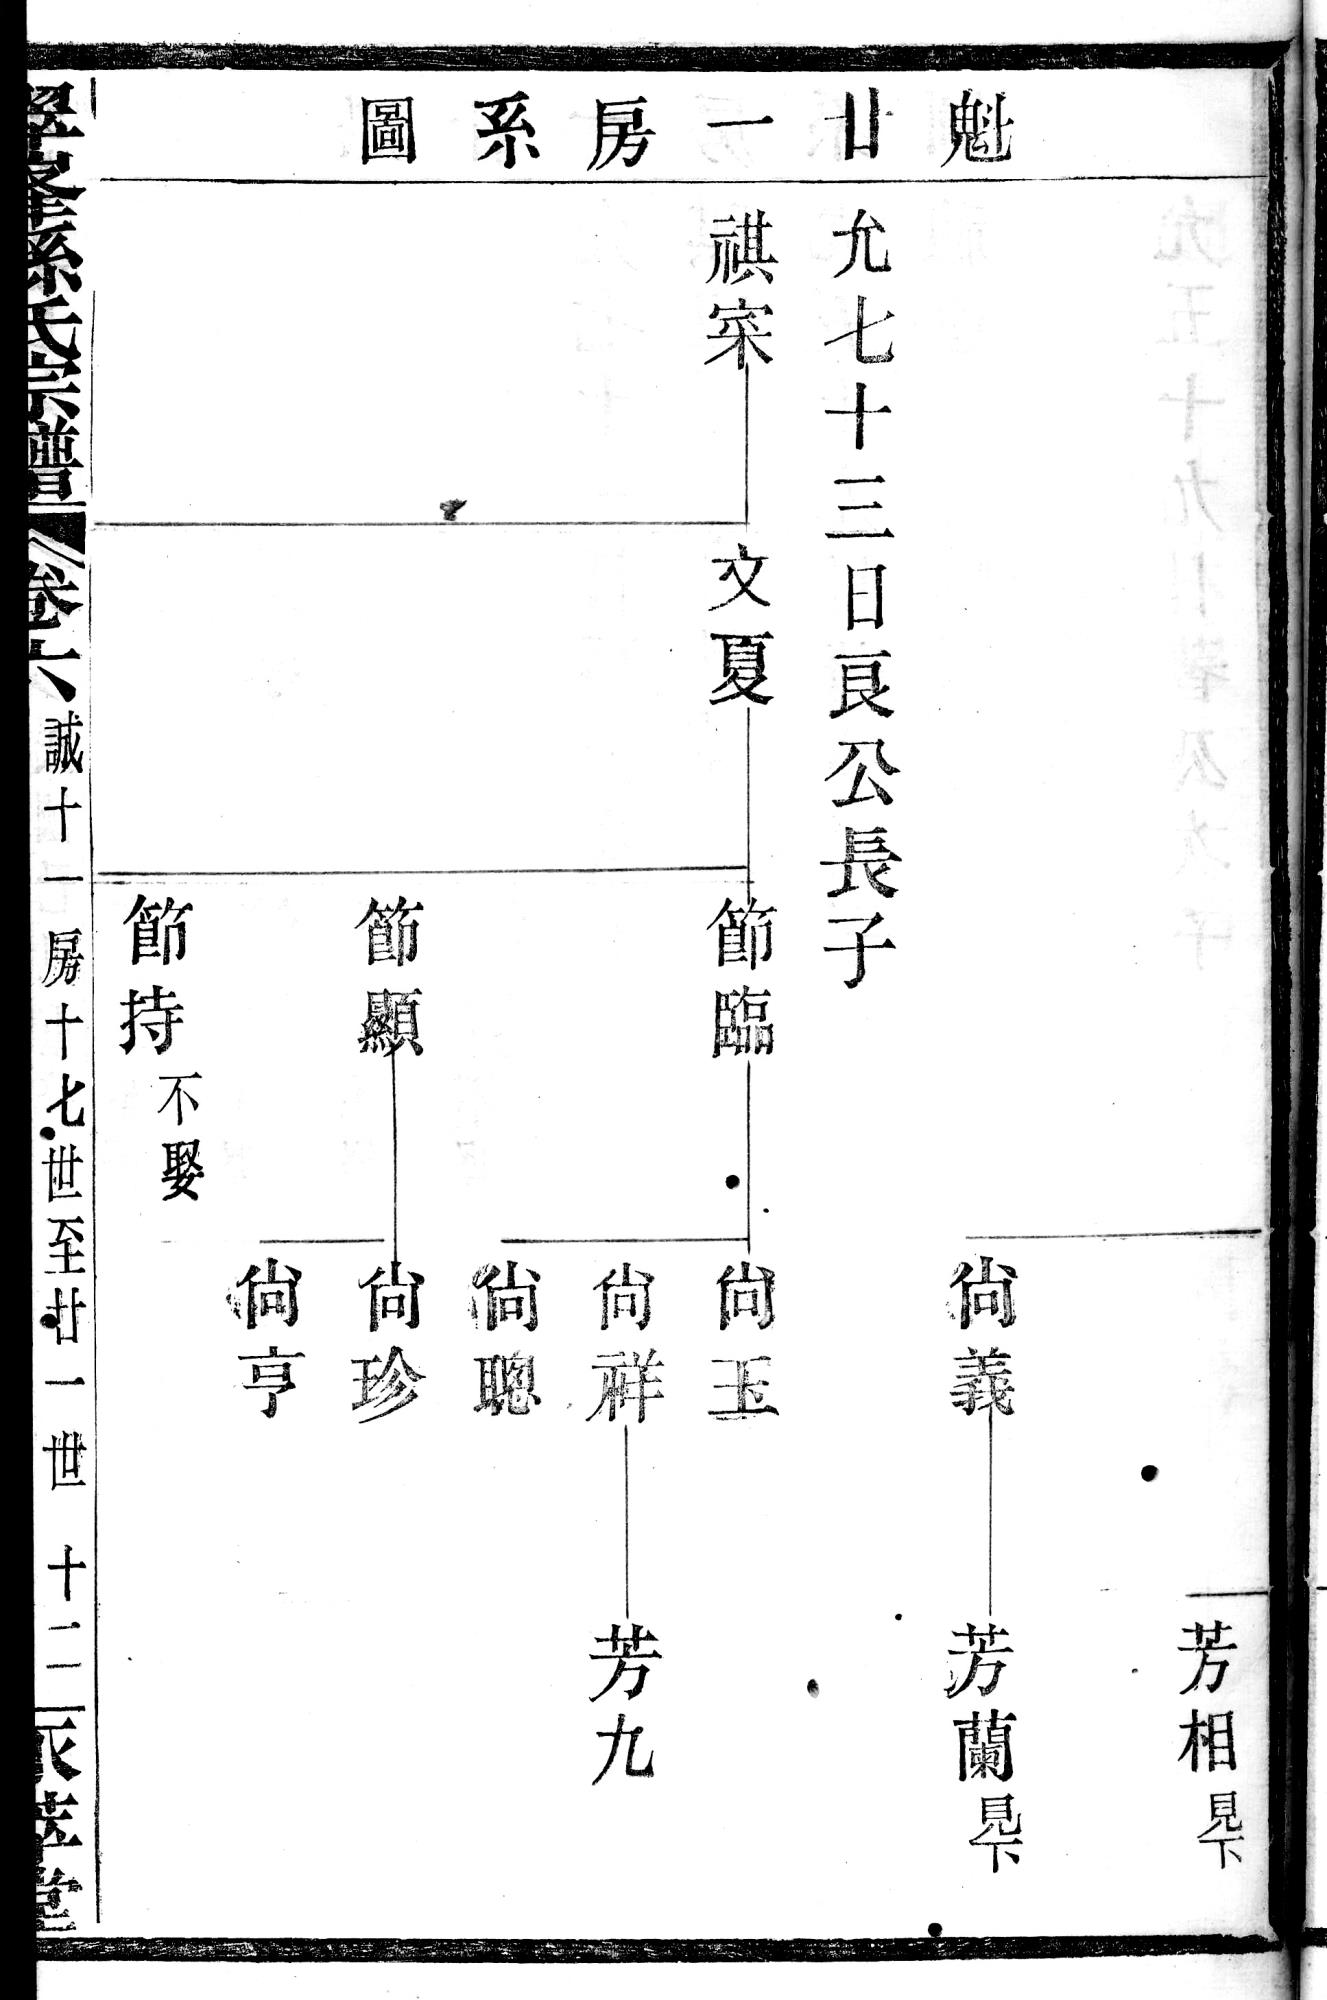 魁廿一房系圖
芳相見下
尙義
芳蘭見下
允七十三日良公長子
祺寀
文夏
節臨
尙玉
尙祥
芳九
尙聰
節顯
尙珍
尙亨
節持不娶
孫氏宗譜
卷六
誠十一房十七世至廿一世
十二
堂